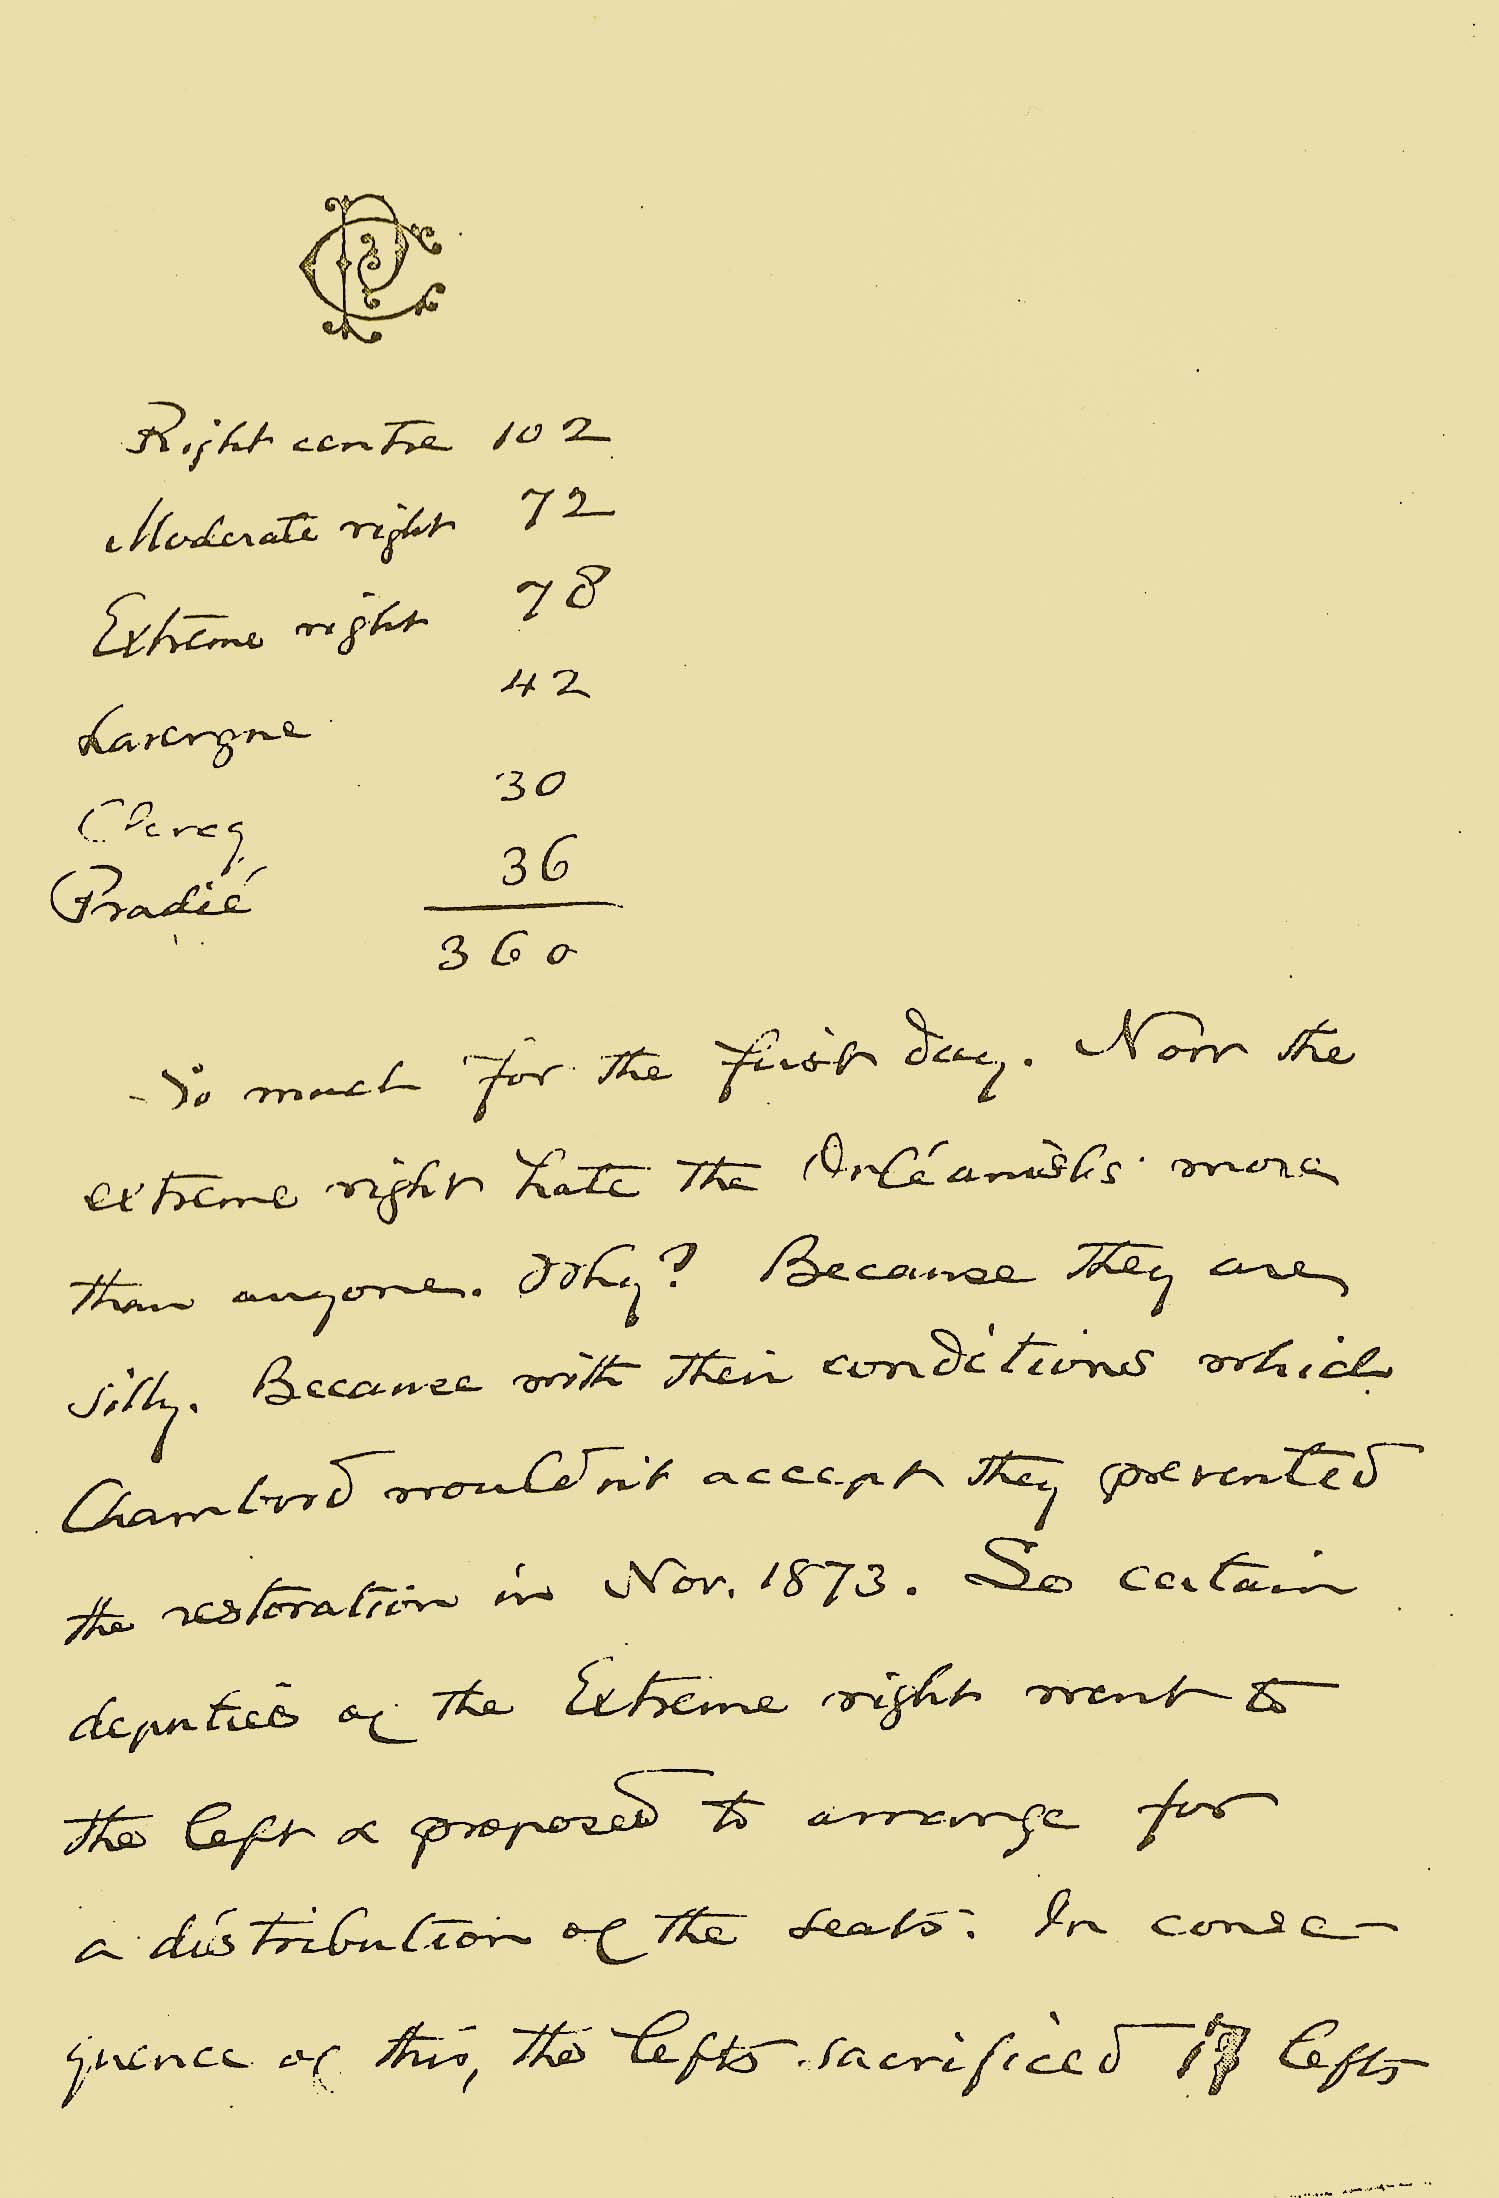 Right centre 102
Moderate right 72
Extreme right 78
Lavergne 42
Clercq 30
Pradié 36
360
So much for the first day. Now the
extreme right hate the Orléanists more
than anyone. Why? Because they are
silly. Because with their conditions which
Chambord wouldn't accept they prevented
the restoration in Nov. 1873. So certain
deputies of the Extreme right went to
the left & proposed to arrange for
a distribution of the seats. In conse-
quence of this, the lefts sacrificed lefts